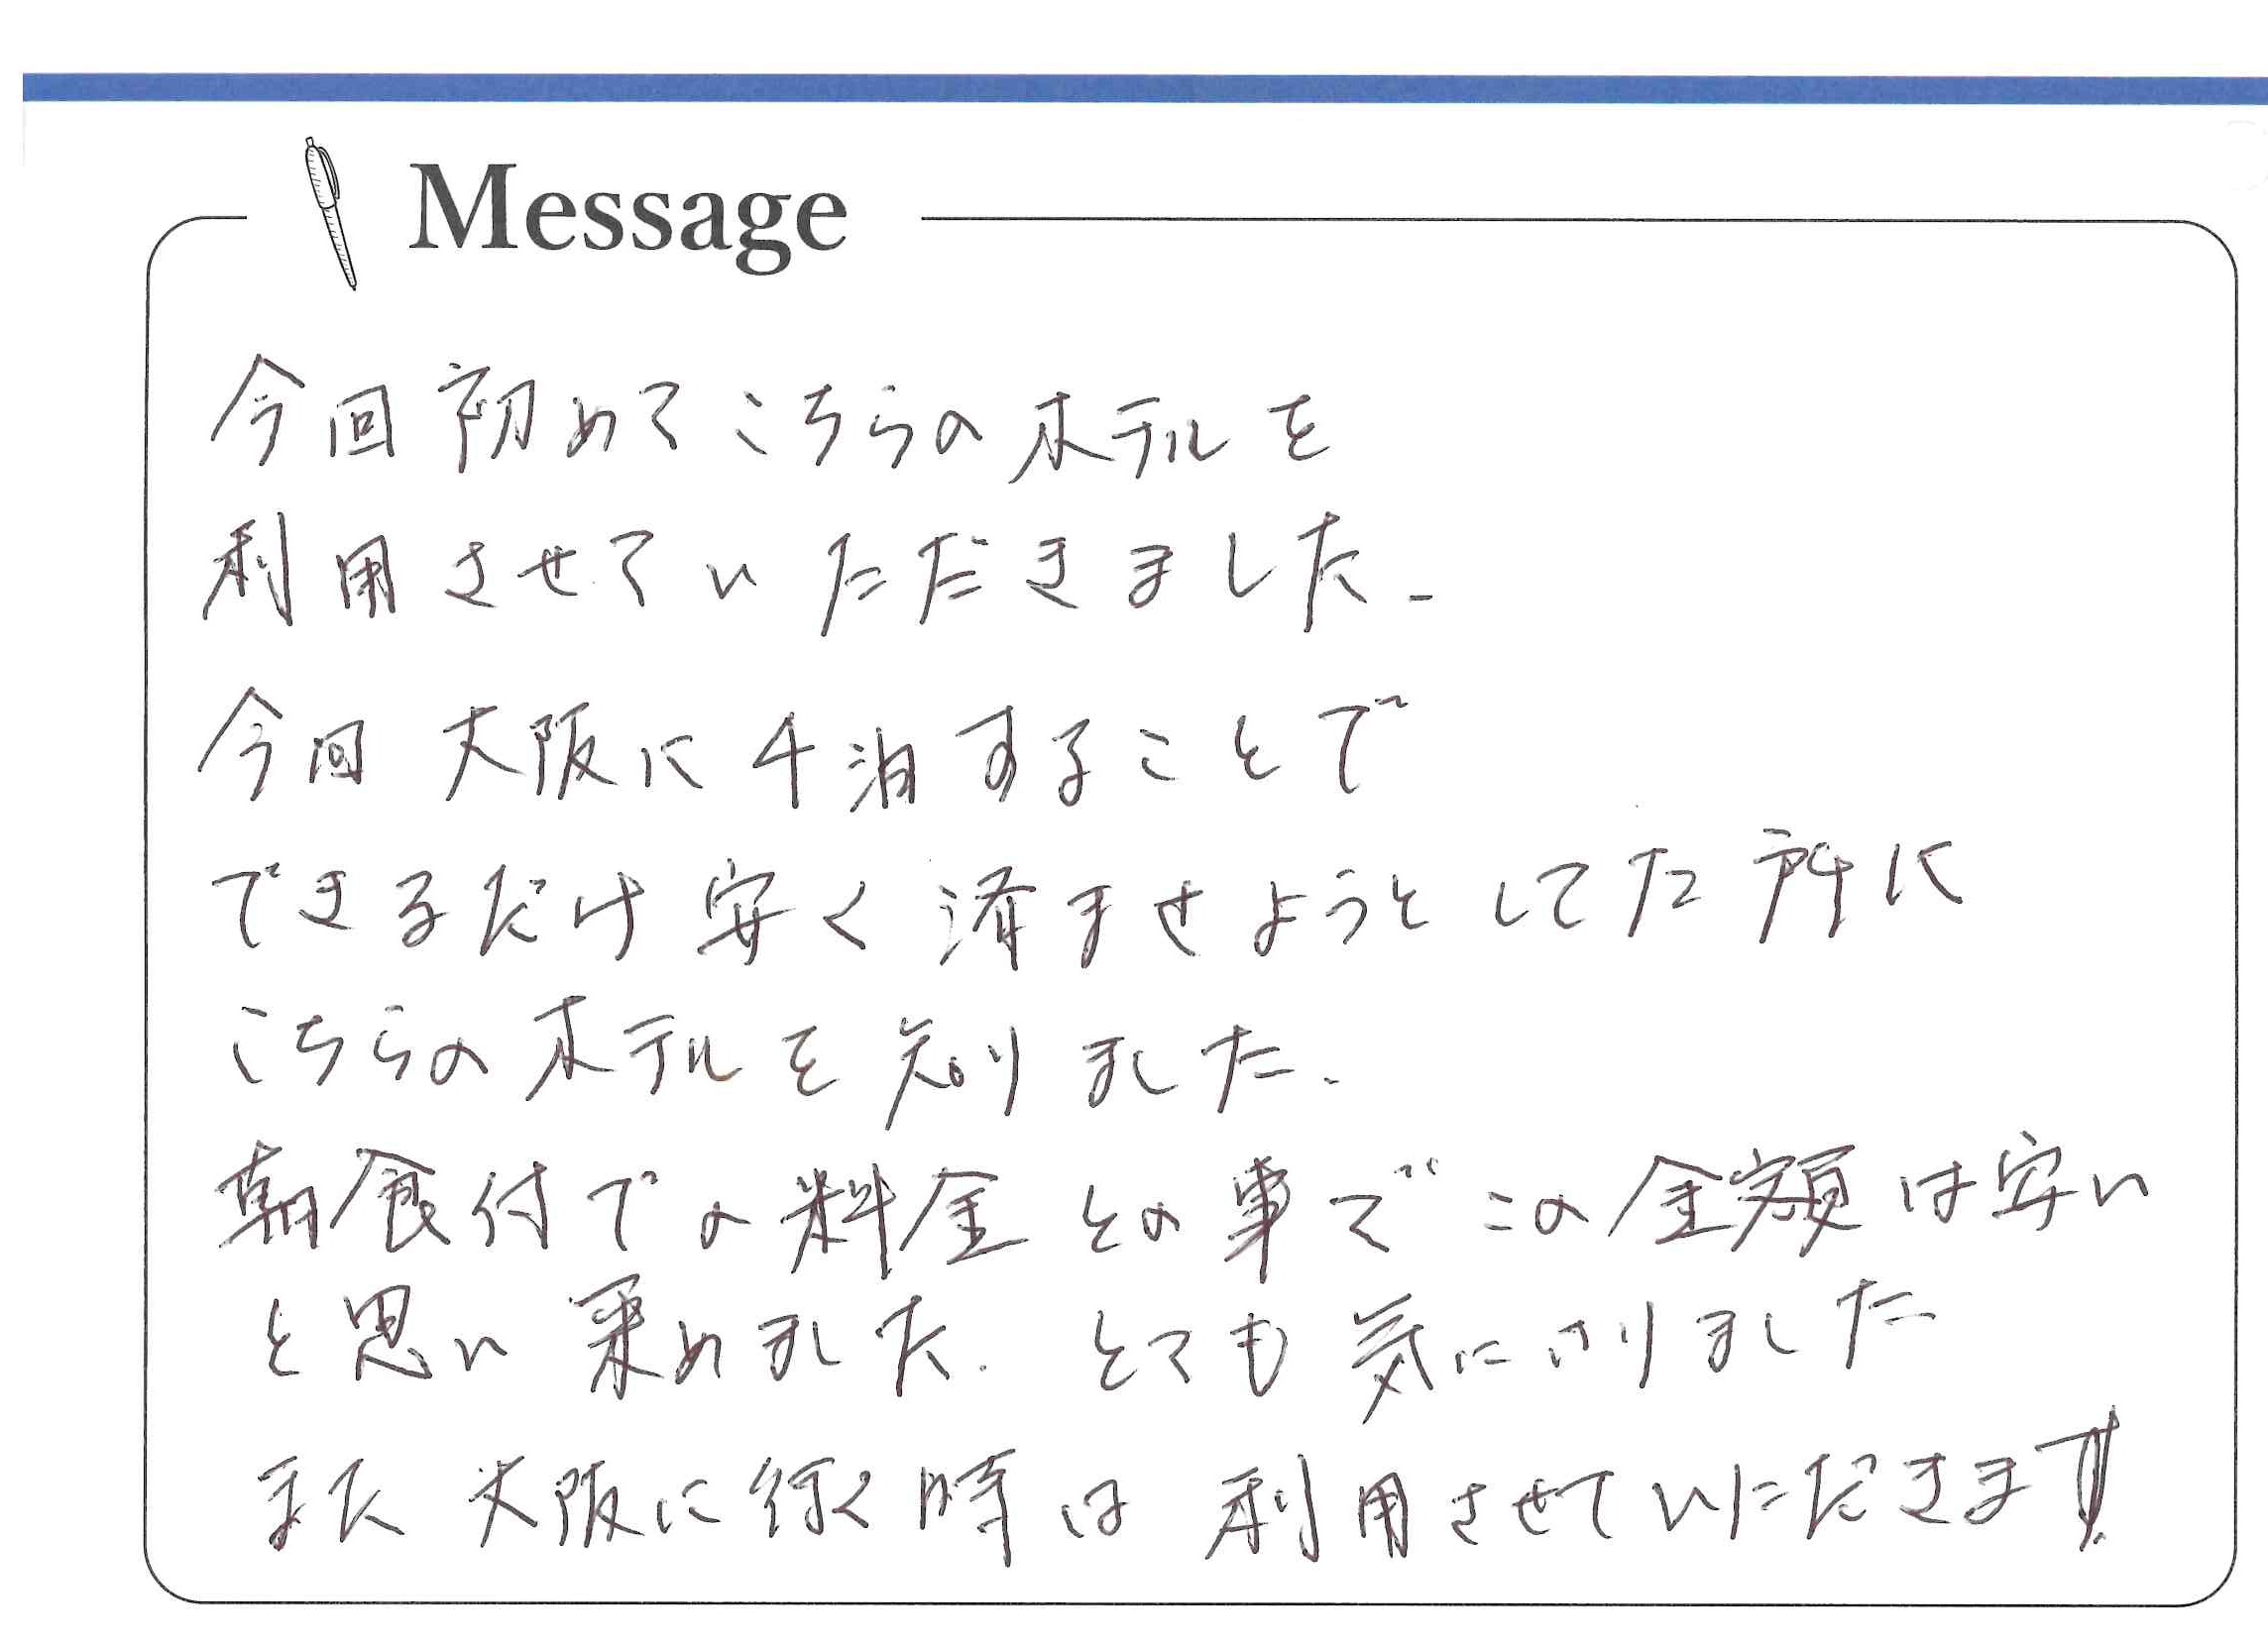 Message
今回初めてこちらのホテルを
利用させていただきました.
今回 大阪に4泊することで
できるだけ安く済ませようとしてた所に
こちらのホテルを知りました.
朝食付での料金との事でこの金額は安い
と思い 求めました. とても気にいりました
また大阪に行く時は利用させていただきます!